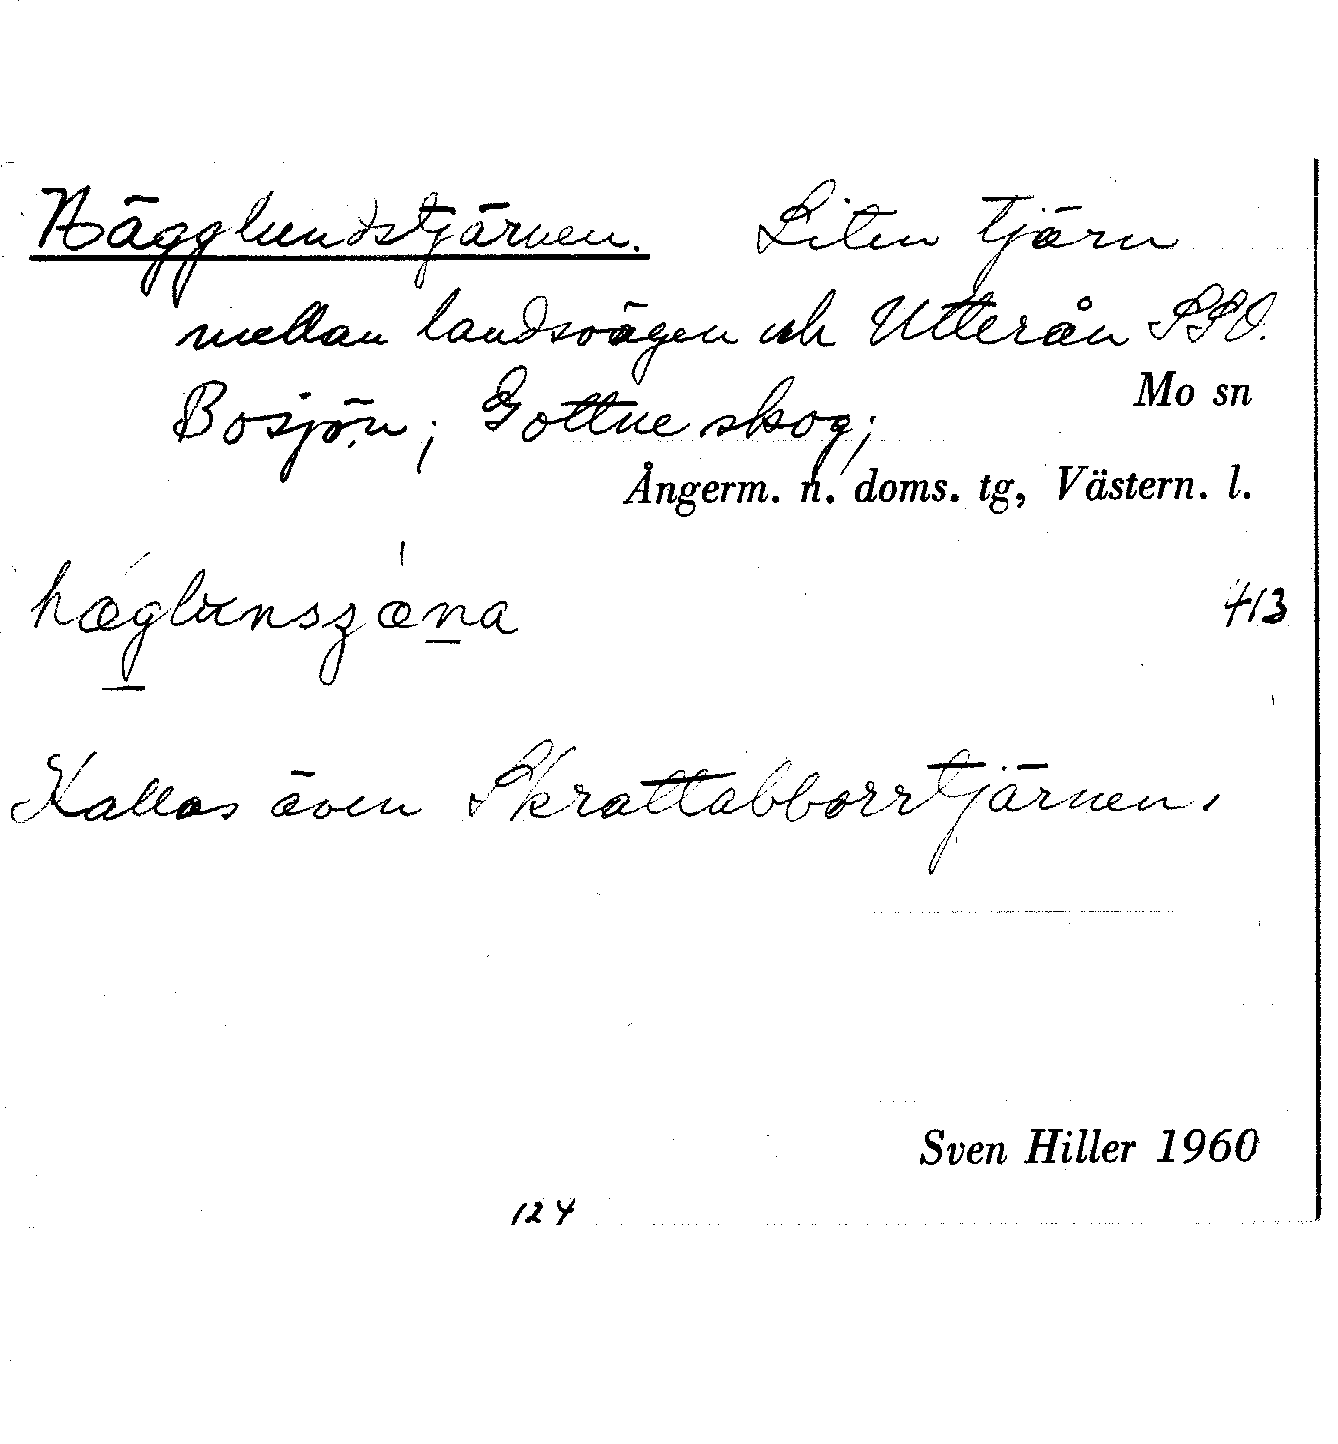 Hägglundstjärnen. Liten tjärn
mellan landsvägen och Utterån SSO.
Bosjön; Gottne skog;
Mo sn
Ångerm. n. doms. tg, Västern. l.
413
Kallas även Skrattabborrtjärnen.
Sven Hiller 1960
124